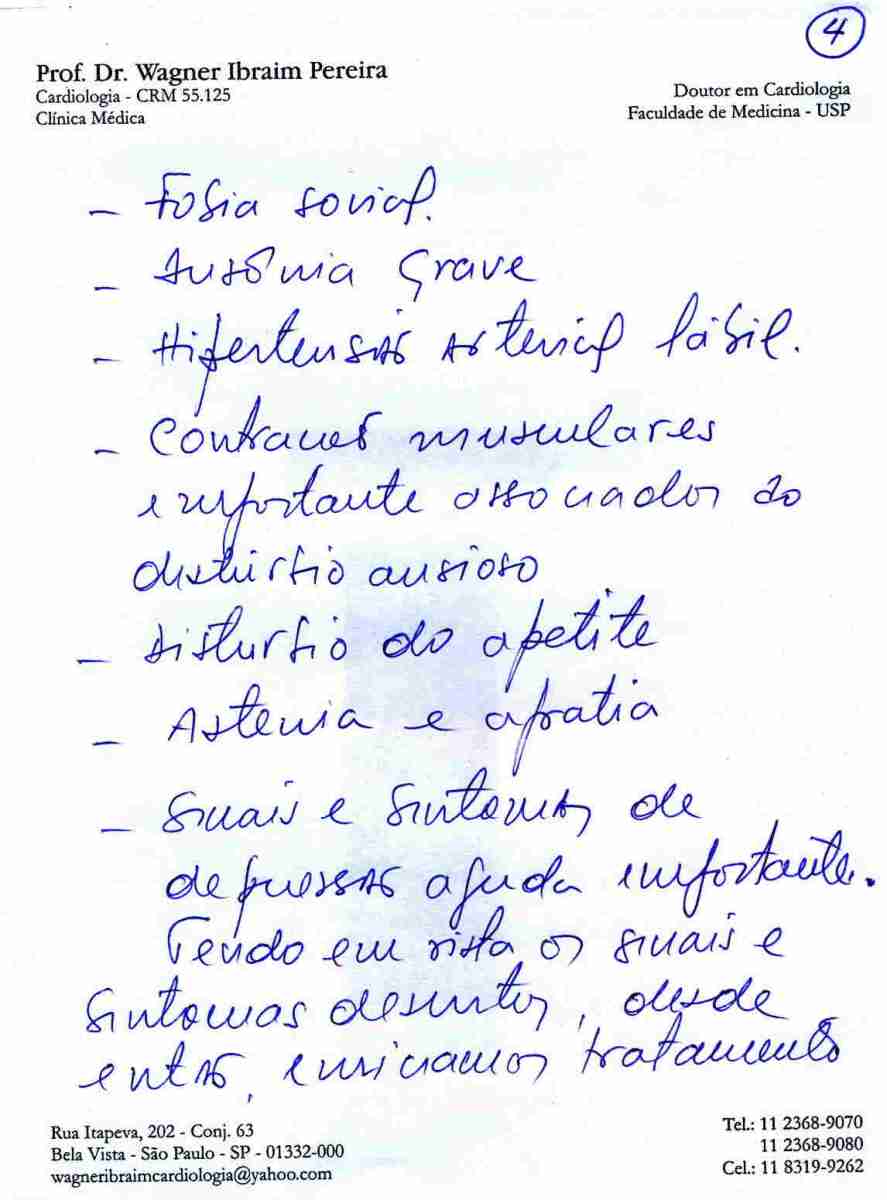 4
Prof. Dr. Wagner Ibraim Pereira
Cardiologia - CRM 55.125
Clínica Médica
Doutor em Cardiologia
Faculdade de Medicina - USP
- Fobia social.
- Insônia grave
- Hipertensão arterial lábil.
- Contrações musculares
importante associados ao
distúrbio ansioso
- Distúrbio do apetite
- Astenia e apatia
- Sinais e sintomas de
depressão aguda importante.
Tendo em vista os sinais e
sintomas descritos, desde
então, iniciamos tratamento
Rua Itapeva, 202 - Conj. 63
Bela Vista - São Paulo - SP - 01332-000
wagneribraimcardiologia@yahoo.com
Tel.: 11 2368-9070
11 2368-9080
Cel.: 11 8319-9262